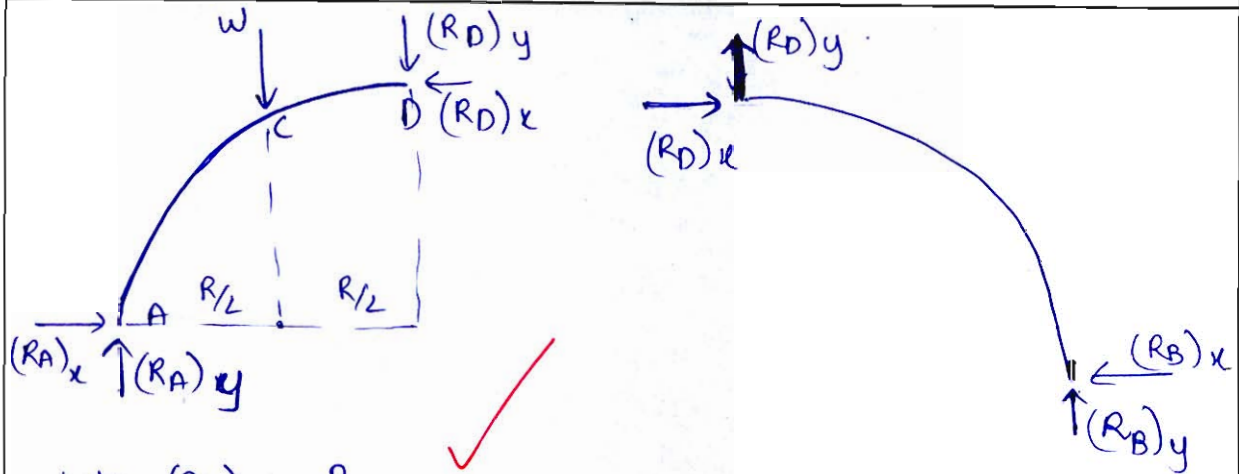 W
(R_D)y
C
D
(R_D)x
A
R/2
R/2
(R_A)x
(R_A)y
(R_D)y
(R_D)x
(R_B)x
(R_B)y